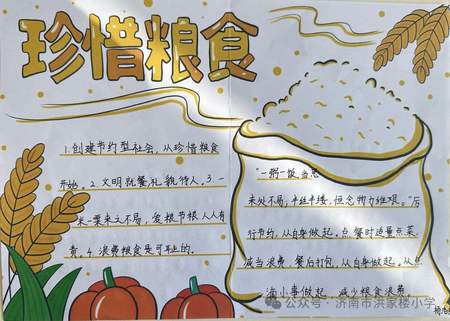 珍惜粮食
1.创建节约型社会,从珍惜粮食
开始。2.文明就餐,礼貌待人。3.一
米一粟来之不易,爱粮节粮人人有
责。4.浪费粮食是可耻的。
"一粥一饭,当思
来处不易,半丝半缕,恒念物力维艰。"厉
行节约,从自年做起。点餐时适量点菜
减当浪费,餐后打包,从自年做起。从点
滴小事做起,减少粮食浪费。
公众号·济南市洪家楼小学